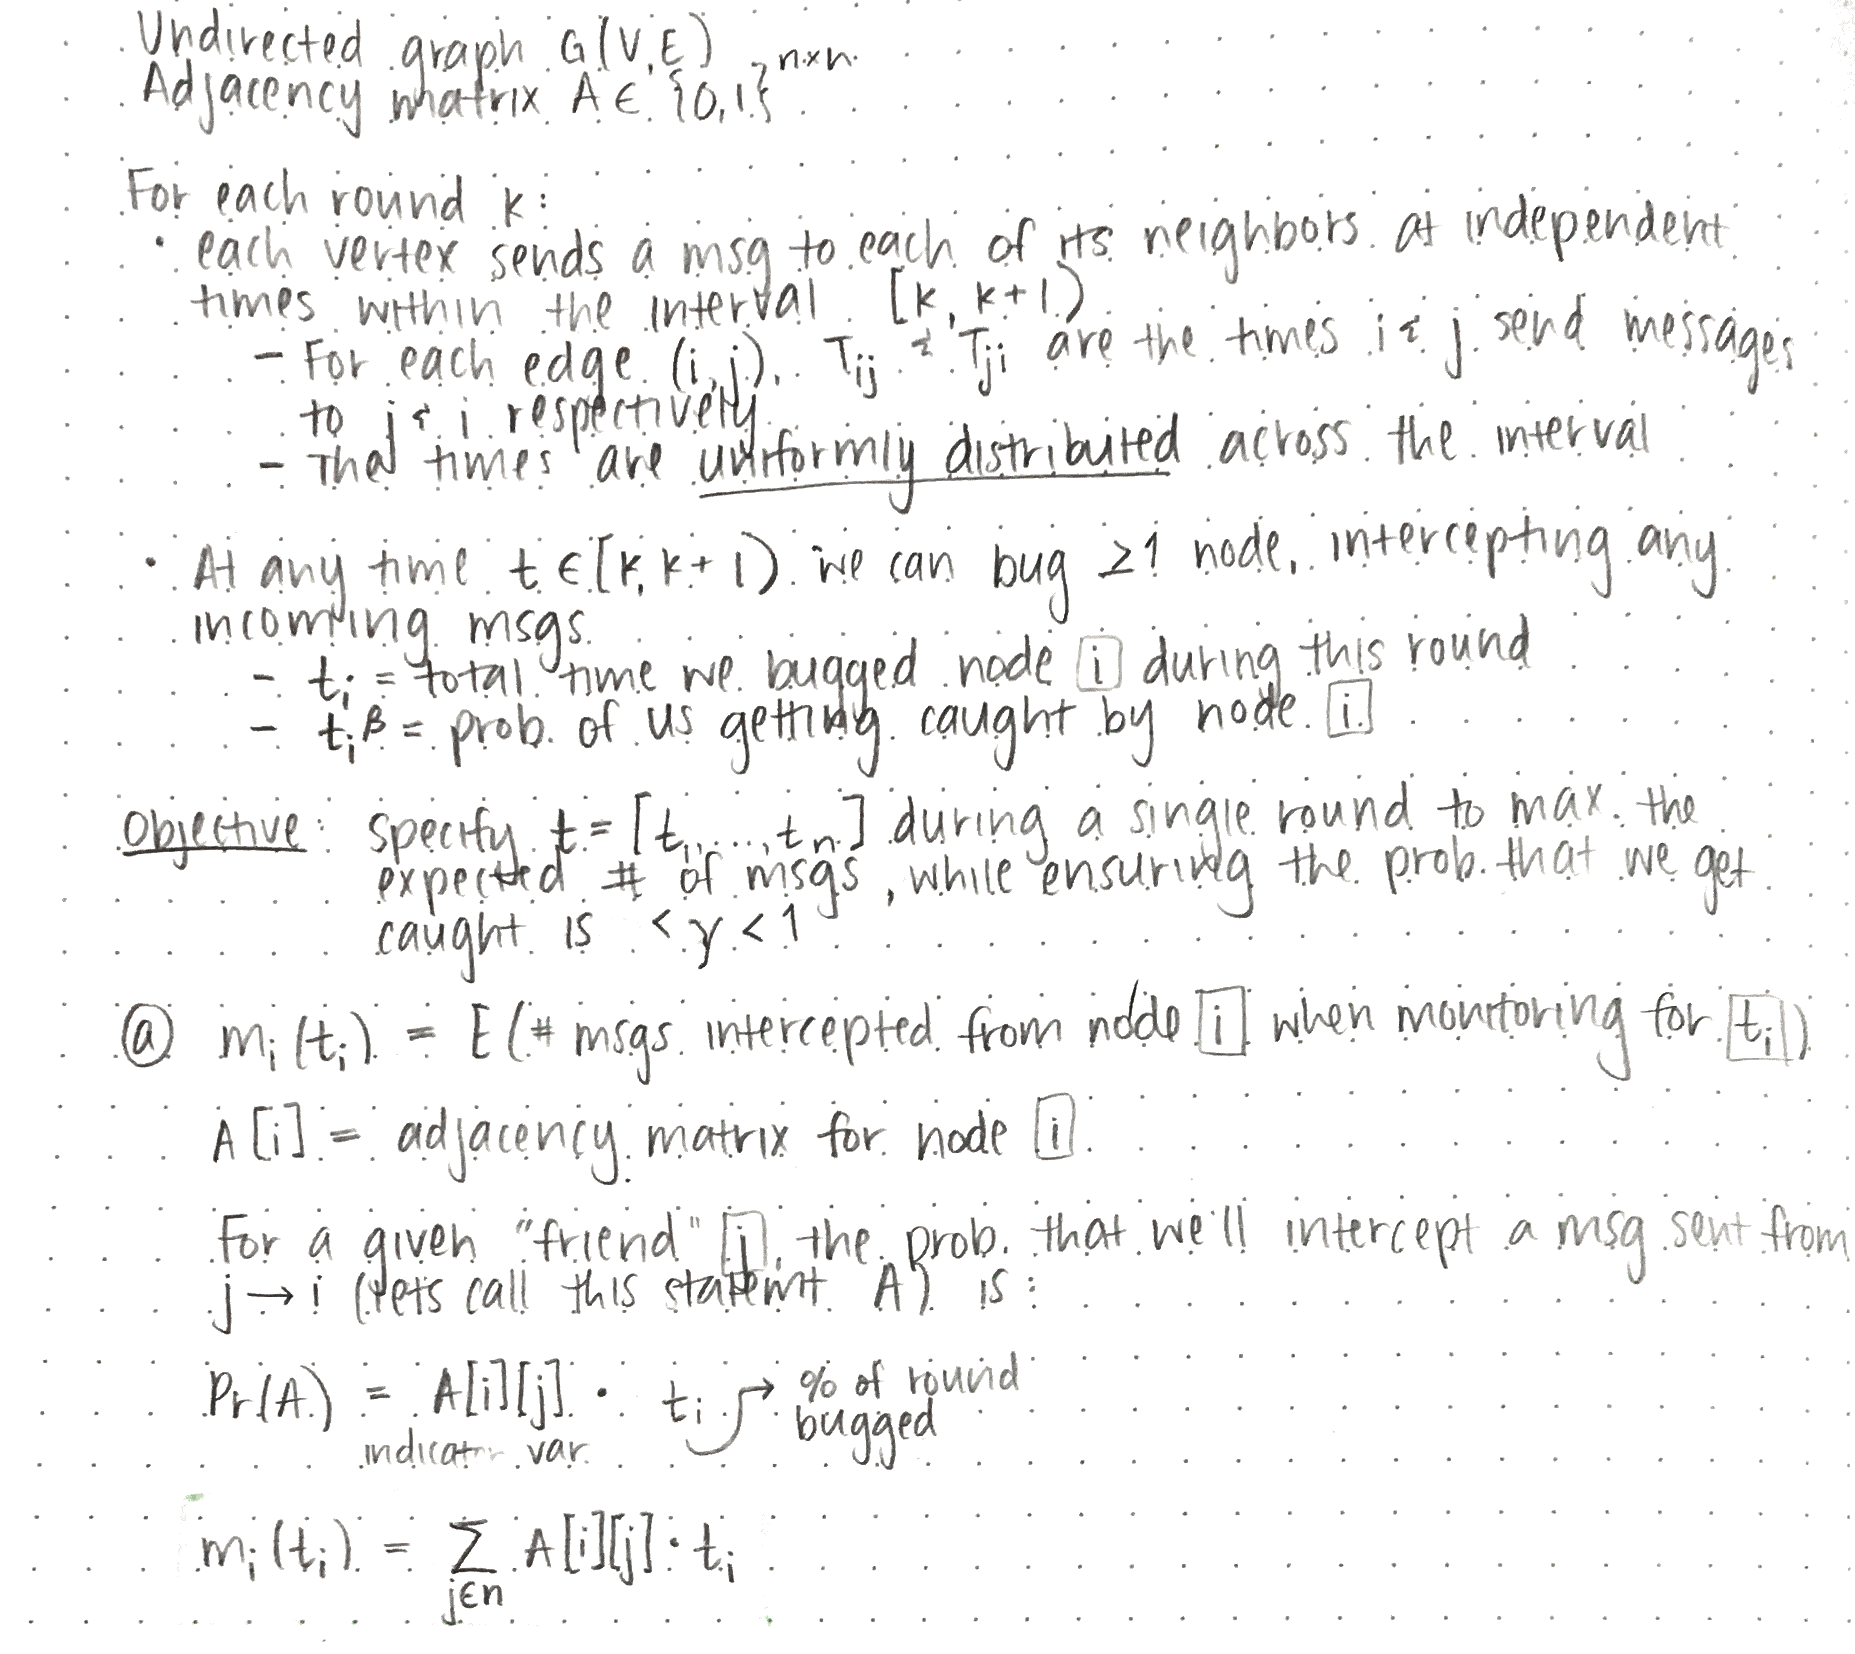 Undirected graph G(V,E)
Adjacency matrix A ∈ {0,1}^n×n
For each round k:
• each vertex sends a msg to each of its neighbors at independent
times within the interval [k, k+1)
- For each edge (i,j), Tij & Tji are the times i & j send messages
to j & i respectively
- The times are uniformly distributed across the interval
• At any time t ∈ [k, k+1) we can bug ≥1 node, intercepting any
incoming msgs.
- ti = total time we bugged node i during this round
- ti^β = prob. of us getting caught by node i
Objective: specify t = [t1, ..., tn] during a single round to max. the
expected # of msgs, while ensuring the prob. that we get
caught is < γ < 1
ⓐ mi(ti) = E(# msgs intercepted from node i when monitoring for ti)
A[i] = adjacency matrix for node i
For a given "friend" j, the prob. that we'll intercept a msg sent from
j → i (lets call this statemnt A) is:
Pr(A) = A[i][j] · ti → % of round
bugged
indicator var.
mi(ti) = Σ A[i][j] · ti
j∈n